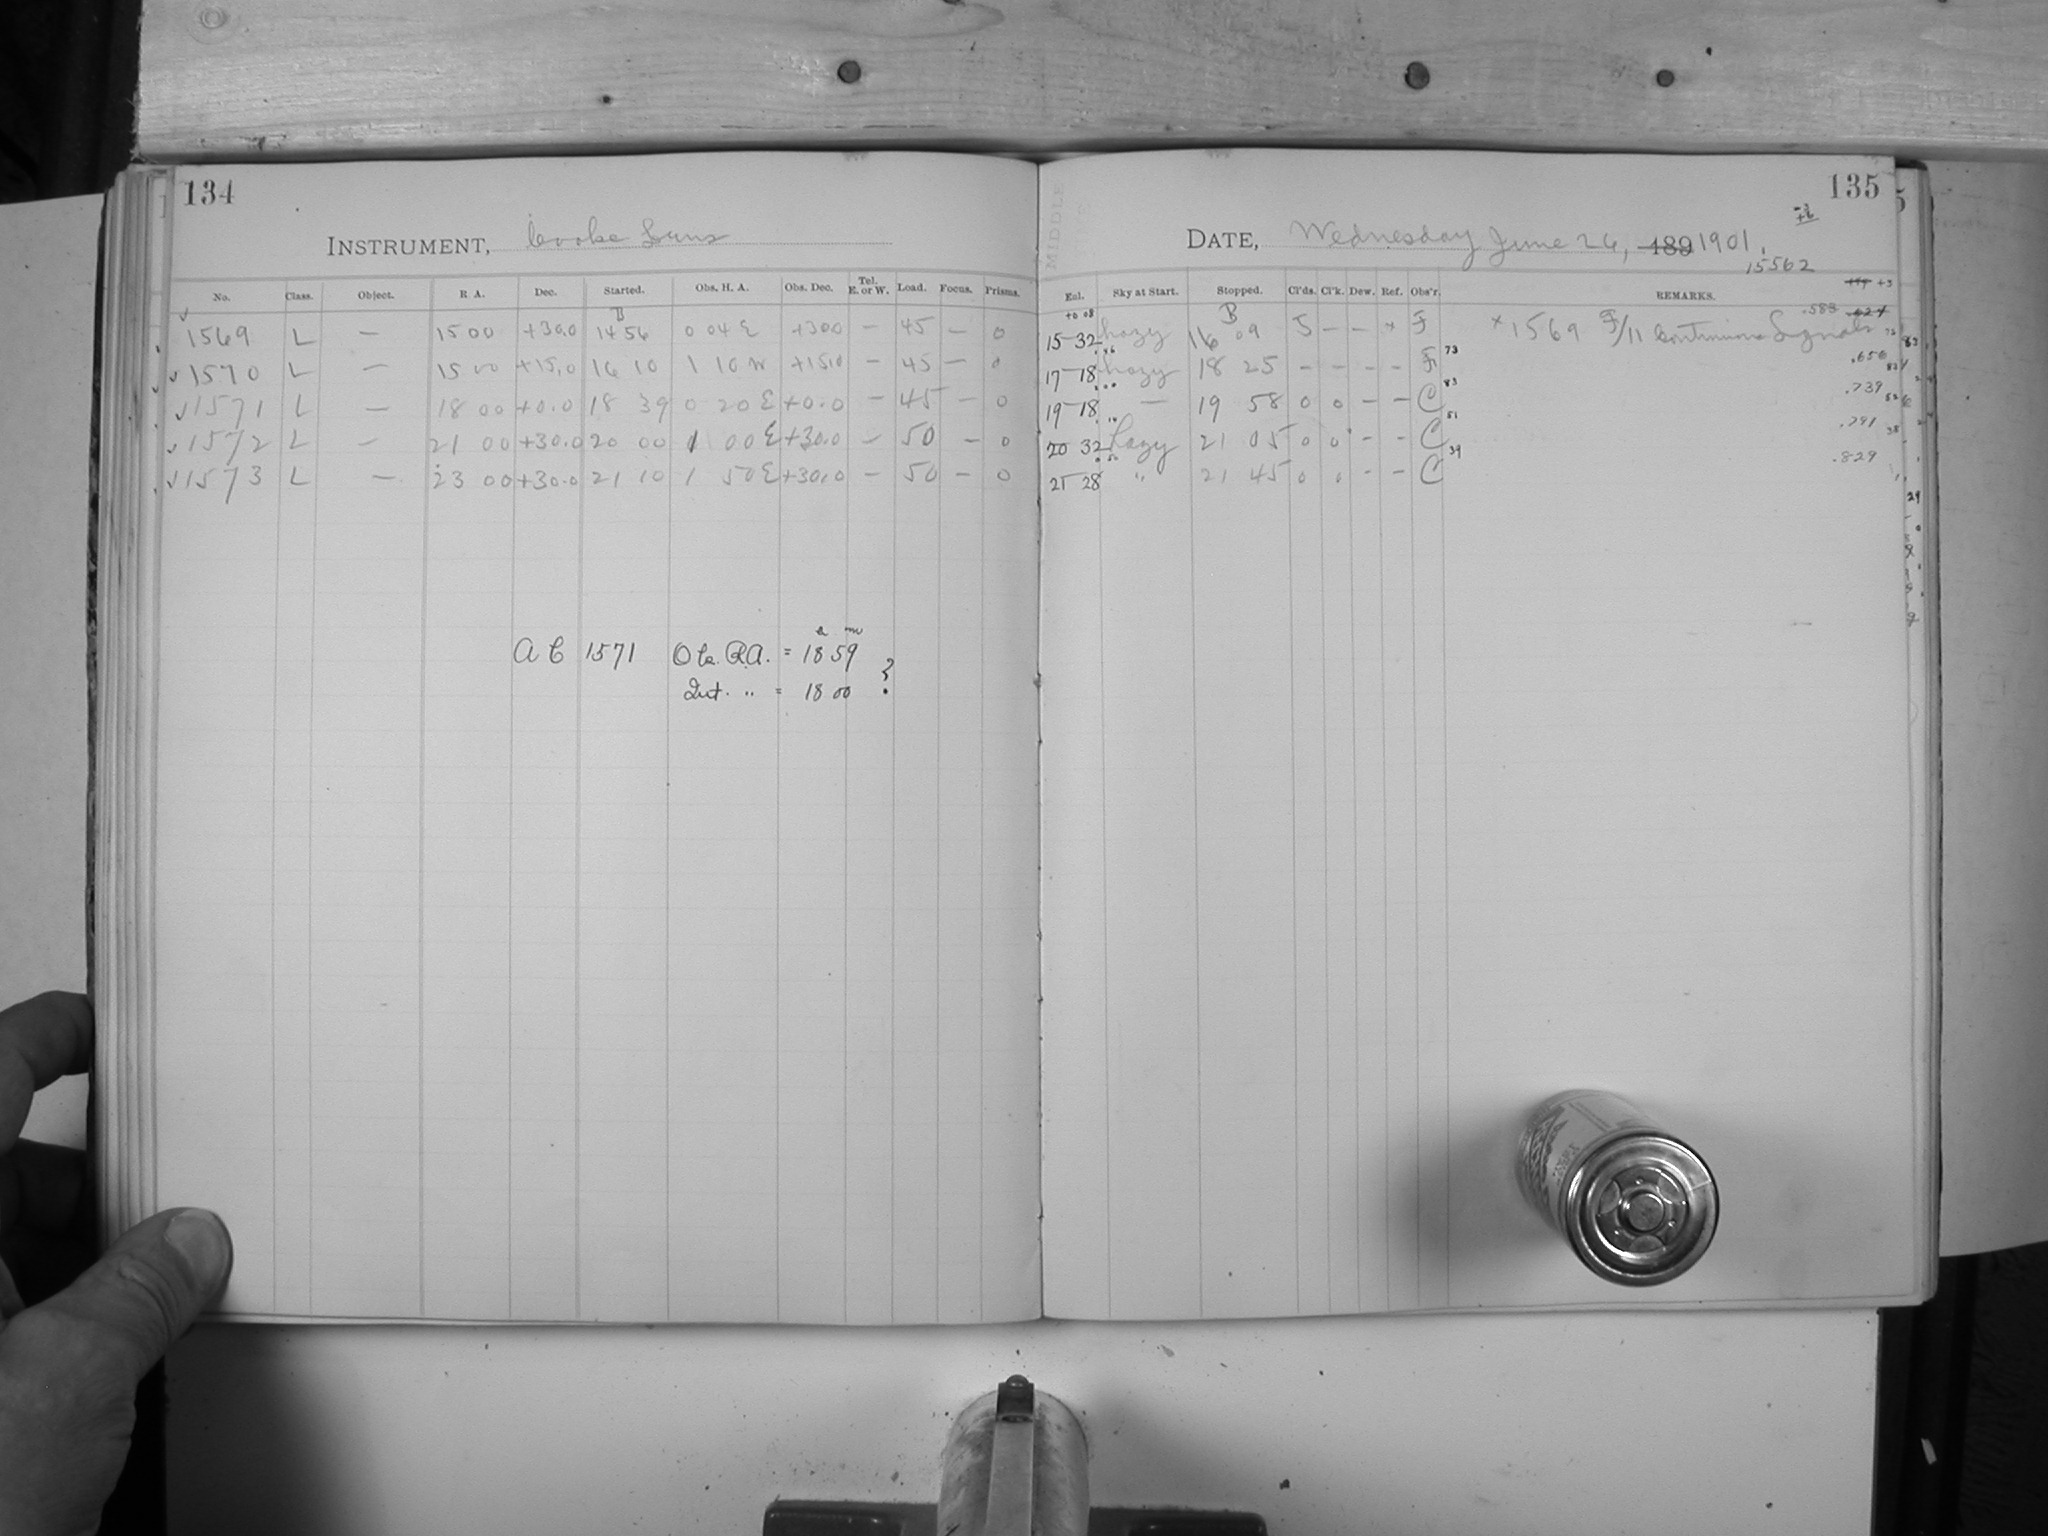 134
INSTRUMENT, Cooke Lens
No. Class. Object. R A. Dec. Started. Obs. H. A. Obs. Dec. Tel. E. or W. Load. Focus. Prisms.
B
1569 L — 15 00 +30.0 14 56 0 04 E +30.0 — 45 — 0
1570 L — 15 00 +15.0 16 10 1 10 W +15.0 — 45 — 0
1571 L — 18 00 +0.0 18 39 0 20 E +0.0 — 45 — 0
1572 L — 21 00 +30.0 20 00 1 00 E +30.0 — 50 — 0
1573 L — 23 00 +30.0 21 10 1 50 E +30.0 — 50 — 0
h m
A C 1571 Obs. R.A. = 18 59
Int. " = 18 00 ?
135
MIDDLE
DATE, Wednesday June 26, 189 1901.
15562
Exl. Sky at Start. Stopped. Cl'ds. Cl'k. Dew. Ref. Obs'r. REMARKS.
+0 08 B .583
15 32 hazy 16 09 5 — — x F x 1569 F/11 Continuous Signals
17 18 hazy 18 25 — — — — F 73 .656
19 18 — 19 58 0 0 — — C 83 .739
20 32 hazy 21 05 0 0 — — C 51 .791
21 28 " 21 45 0 0 — — C 39 .829